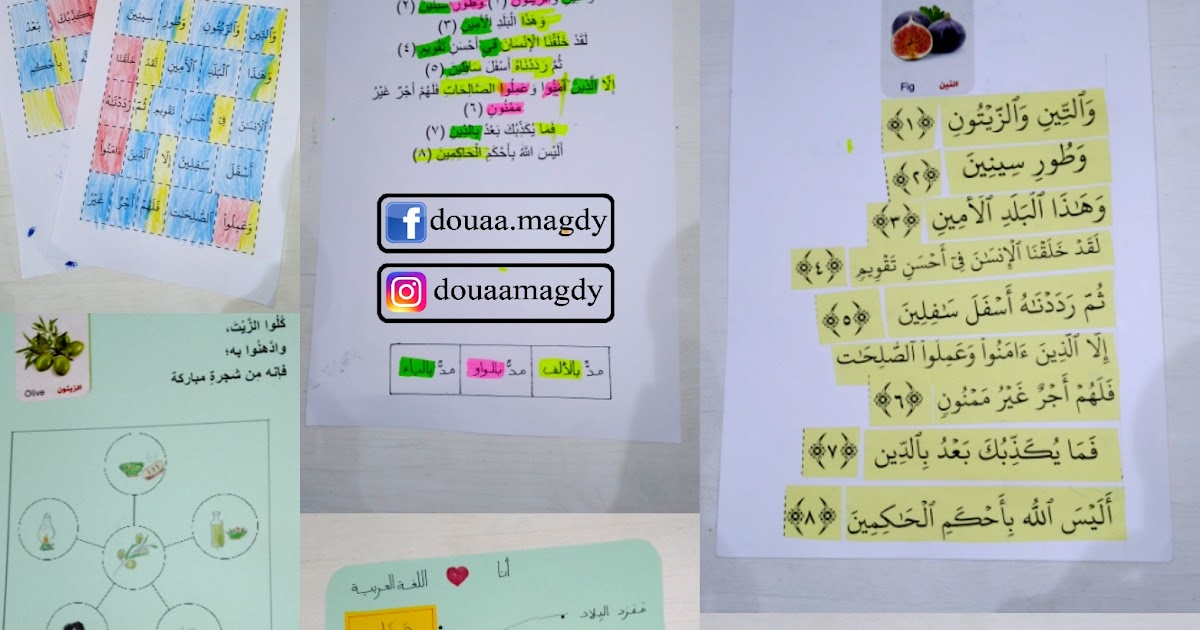 وَٱلتِّينِ وَٱلزَّيْتُونِ وَطُورِ سِينِينَ
وَهَٰذَا ٱلْبَلَدِ ٱلْأَمِينِ لَقَدْ خَلَقْنَا
ٱلْإِنسَٰنَ فِىٓ أَحْسَنِ تَقْوِيمٍ ثُمَّ رَدَدْنَٰهُ
أَسْفَلَ سَٰفِلِينَ إِلَّا ٱلَّذِينَ ءَامَنُوا۟
وَعَمِلُوا۟ ٱلصَّٰلِحَٰتِ فَلَهُمْ أَجْرٌ غَيْرُ
يُكَذِّبُكَ بَعْدُ
بِأَحْكَمِ
وَطُورِ سِينِينَ (٢)
وَهَذَا الْبَلَدِ الْأَمِينِ (٣)
لَقَدْ خَلَقْنَا الْإِنْسَانَ فِي أَحْسَنِ تَقْوِيمٍ (٤)
ثُمَّ رَدَدْنَاهُ أَسْفَلَ سَافِلِينَ (٥)
إِلَّا الَّذِينَ آَمَنُوا وَعَمِلُوا الصَّالِحَاتِ فَلَهُمْ أَجْرٌ غَيْرُ
مَمْنُونٍ (٦)
فَمَا يُكَذِّبُكَ بَعْدُ بِالدِّينِ (٧)
أَلَيْسَ اللَّهُ بِأَحْكَمِ الْحَاكِمِينَ (٨)
douaa.magdy
douaamagdy
مدٌّ بالألف مدٌّ بالواو مدٌّ بالياء
Fig التين
وَٱلتِّينِ وَٱلزَّيْتُونِ ﴿١﴾
وَطُورِ سِينِينَ ﴿٢﴾
وَهَٰذَا ٱلْبَلَدِ ٱلْأَمِينِ ﴿٣﴾
لَقَدْ خَلَقْنَا ٱلْإِنسَٰنَ فِىٓ أَحْسَنِ تَقْوِيمٍ ﴿٤﴾
ثُمَّ رَدَدْنَٰهُ أَسْفَلَ سَٰفِلِينَ ﴿٥﴾
إِلَّا ٱلَّذِينَ ءَامَنُوا۟ وَعَمِلُوا۟ ٱلصَّٰلِحَٰتِ
فَلَهُمْ أَجْرٌ غَيْرُ مَمْنُونٍ ﴿٦﴾
فَمَا يُكَذِّبُكَ بَعْدُ بِٱلدِّينِ ﴿٧﴾
أَلَيْسَ ٱللَّهُ بِأَحْكَمِ ٱلْحَٰكِمِينَ ﴿٨﴾
كُلُوا الزَّيْتَ،
وادَّهِنُوا به؛
فإنه مِن شجرةٍ مباركة
Olive الزيتون
أنا اللغة العربية
مُفرد البِلاد